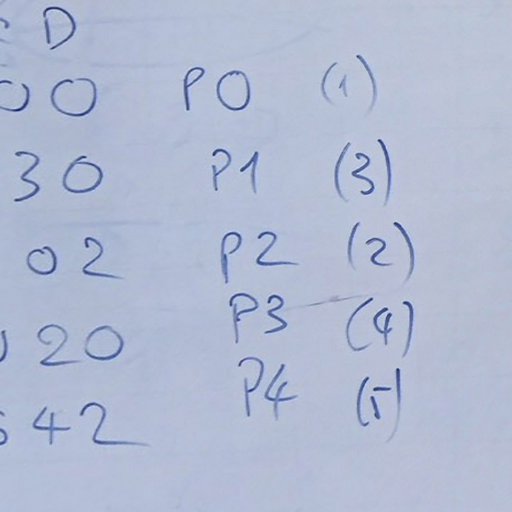 D
00 P0 (1)
30 P1 (3)
02 P2 (2)
20 P3 (4)
42 P4 (5)